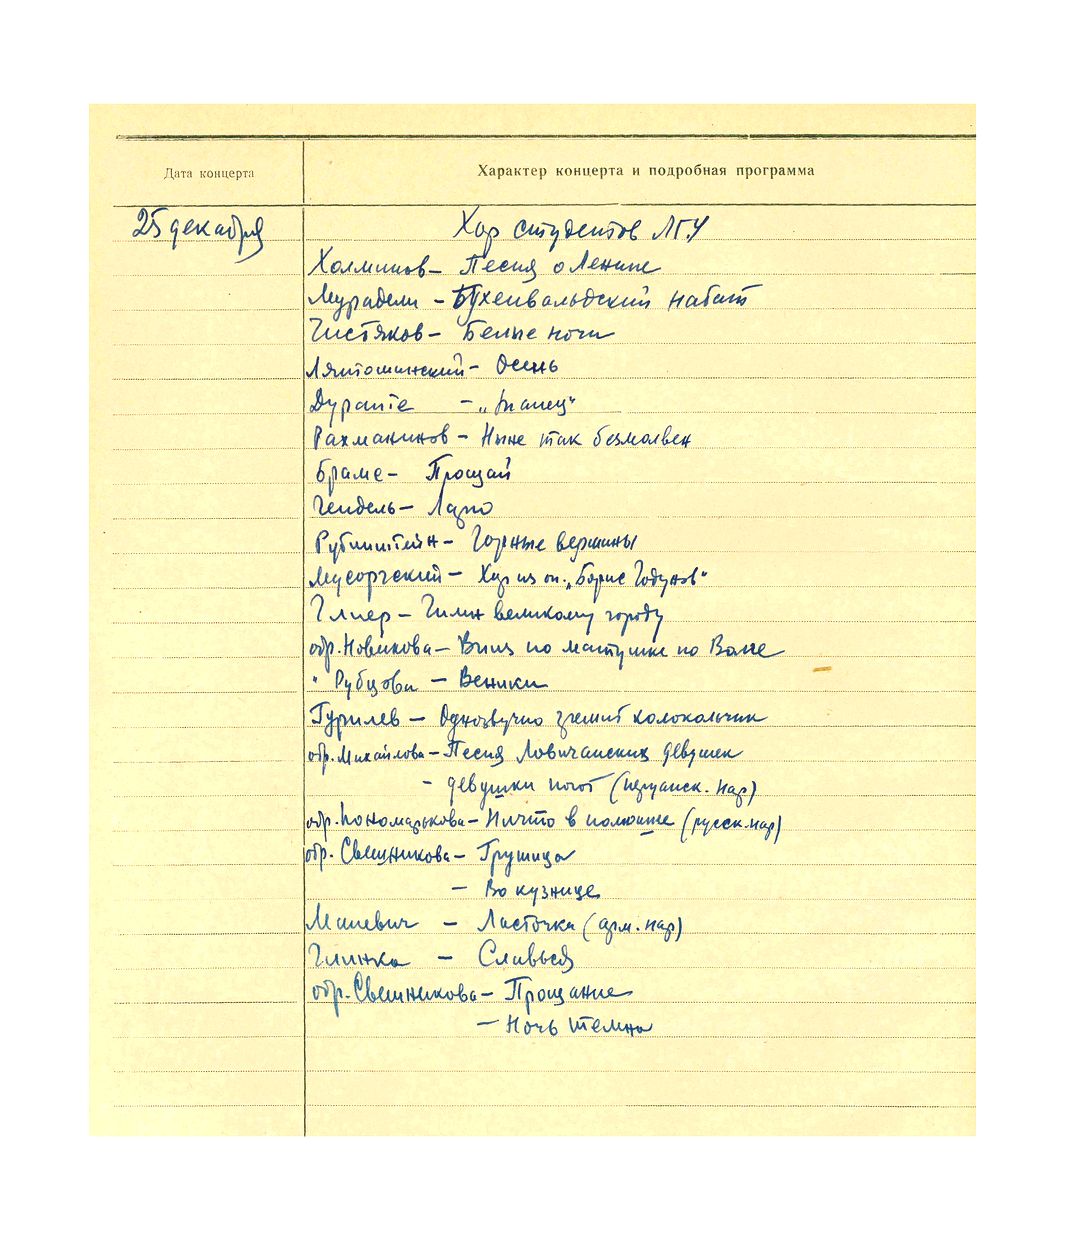 Дата концерта
Характер концерта и подробная программа
25 декабря
Хор студентов ЛГУ
Холминов – Песня о Ленине
Мурадели – Бухенвальдский набат
Чистяков – Белые ночи
Лятошинский – Осень
Дуранте – „Танец“
Рахманинов – Ныне так безмолвен
Брамс – Прощай
Гендель – Ларго
Рубинштейн – Горные вершины
Мусоргский – Хор из оп. „Борис Годунов“
Глиер – Гимн великому городу
обр. Новикова – Вниз по матушке по Волге
" Рубцова – Веники
Гурилев – Однозвучно гремит колокольчик
обр. Михайлова – Песня Ловичанских девушек
– девушки поют (перуанск. нар)
обр. Пономарькова – Ничто в полюшке (русск. нар)
обр. Свешникова – Грушица
– Во кузнице
Маневич – Ласточка (арм. нар)
Глинка – Славься
обр. Свешникова – Прощание
– Ночь темна